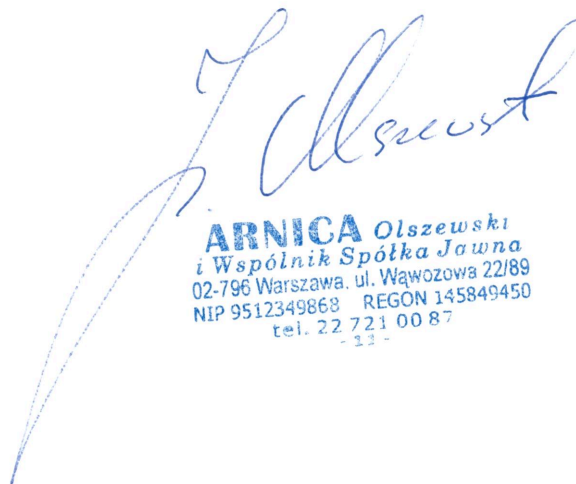 J. Olszewsk
ARNICA Olszewski
i Wspólnik Spółka Jawna
02-796 Warszawa, ul. Wąwozowa 22/89
NIP 9512349868 REGON 145849450
tel. 22 721 00 87
- 11 -